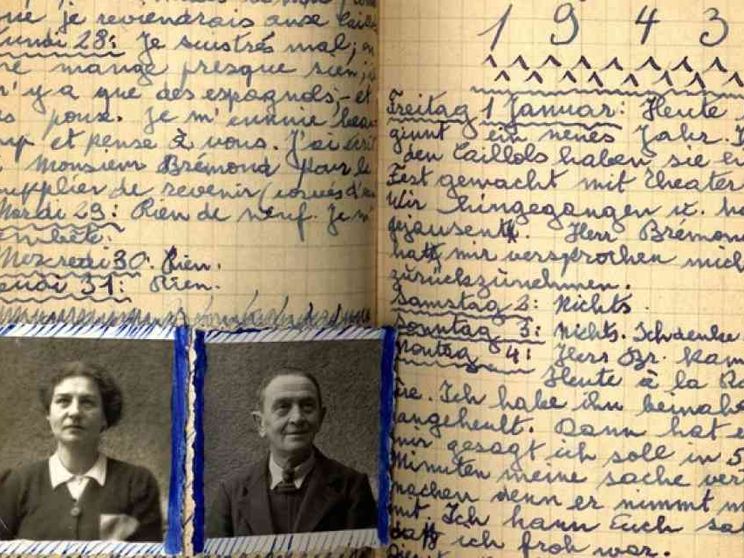 que je reviendrais aux Caillols
Lundi 28: Je suis très mal, on
mange presque rien,
n'y a que des espagnols, et
poux. Je m'ennuie beau
et pense à vous. J'ai écrit
à Monsieur Brémond pour le
supplier de revenir
Mardi 29: Rien de neuf. Je m'
embête.
Mercredi 30. Rien.
Jeudi 31: Rien.
1943
Freitag 1 Januar: Heute
ginnt ein neues Jahr. I
den Caillols haben sie ei
Fest gemacht mit Theater
Wir hingegangen u. ha
gejausent. Herr Brémon
hat mir versprochen mich
zurückzunehmen.
Samstag 2: Nichts.
Sonntag 3: nichts. Ich denke
Montag 4: Herr Br. kam
Heute à la Ro
re. Ich habe ihn beinah
angeheult. Dann hat e
mir gesagt ich soll in 5
Minuten meine sache ver
machen denn er nimmt m
mit. Ich kann Euch sa
daß ich froh war.